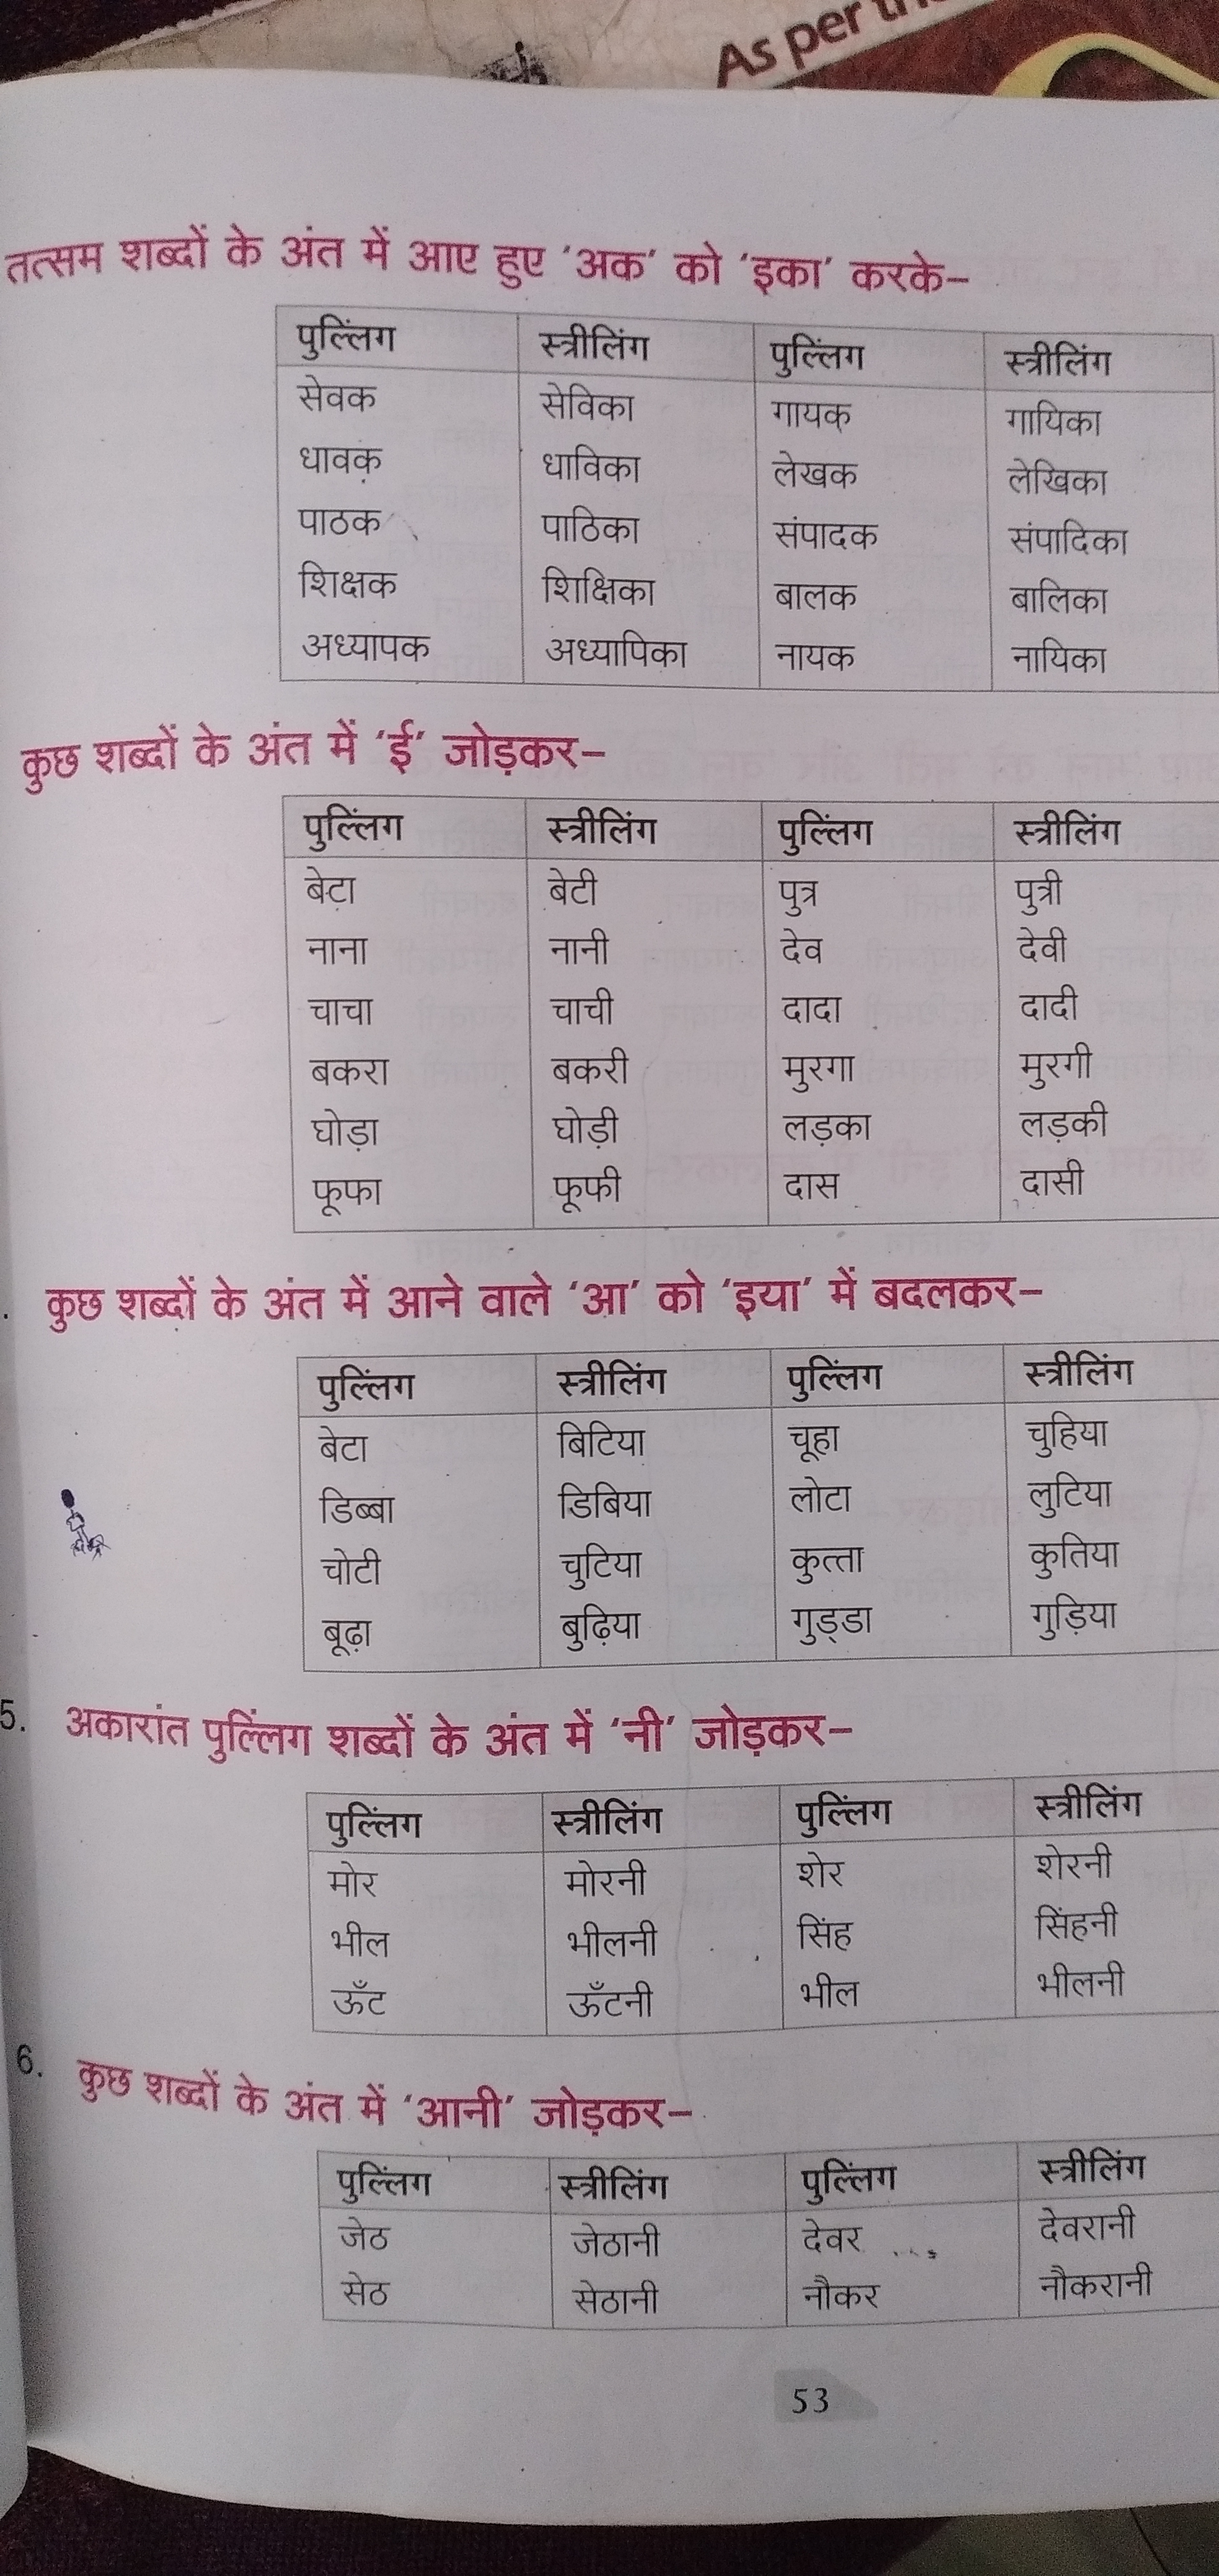 As per
तत्सम शब्दों के अंत में आए हुए ‘अक’ को ‘इका’ करके–
पुल्लिंग स्त्रीलिंग पुल्लिंग स्त्रीलिंग
सेवक सेविका गायक गायिका
धावक धाविका लेखक लेखिका
पाठक पाठिका संपादक संपादिका
शिक्षक शिक्षिका बालक बालिका
अध्यापक अध्यापिका नायक नायिका
कुछ शब्दों के अंत में ‘ई’ जोड़कर–
पुल्लिंग स्त्रीलिंग पुल्लिंग स्त्रीलिंग
बेटा बेटी पुत्र पुत्री
नाना नानी देव देवी
चाचा चाची दादा दादी
बकरा बकरी मुरगा मुरगी
घोड़ा घोड़ी लड़का लड़की
फूफा फूफी दास दासी
. कुछ शब्दों के अंत में आने वाले ‘आ’ को ‘इया’ में बदलकर–
पुल्लिंग स्त्रीलिंग पुल्लिंग स्त्रीलिंग
बेटा बिटिया चूहा चुहिया
डिब्बा डिबिया लोटा लुटिया
चोटी चुटिया कुत्ता कुतिया
बूढ़ा बुढ़िया गुड्डा गुड़िया
5. अकारांत पुल्लिंग शब्दों के अंत में ‘नी’ जोड़कर–
पुल्लिंग स्त्रीलिंग पुल्लिंग स्त्रीलिंग
मोर मोरनी शेर शेरनी
भील भीलनी सिंह सिंहनी
ऊँट ऊँटनी भील भीलनी
6. कुछ शब्दों के अंत में ‘आनी’ जोड़कर–
पुल्लिंग स्त्रीलिंग पुल्लिंग स्त्रीलिंग
जेठ जेठानी देवर देवरानी
सेठ सेठानी नौकर नौकरानी
53